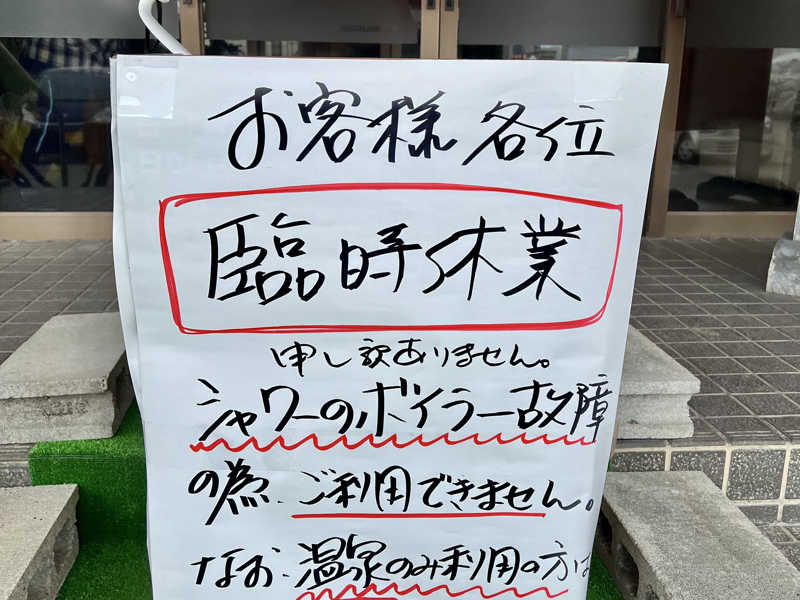 お客様各位
臨時休業
申し訳ありません。
シャワーのボイラー故障
の為、ご利用できません。
なお、温泉のみ利用の方は